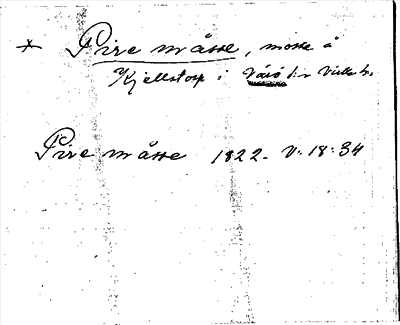 * Pire måsse, mosse å
Kjellstorp i Värö sn Viske h.
Pire måsse 1822. V: 18: 34